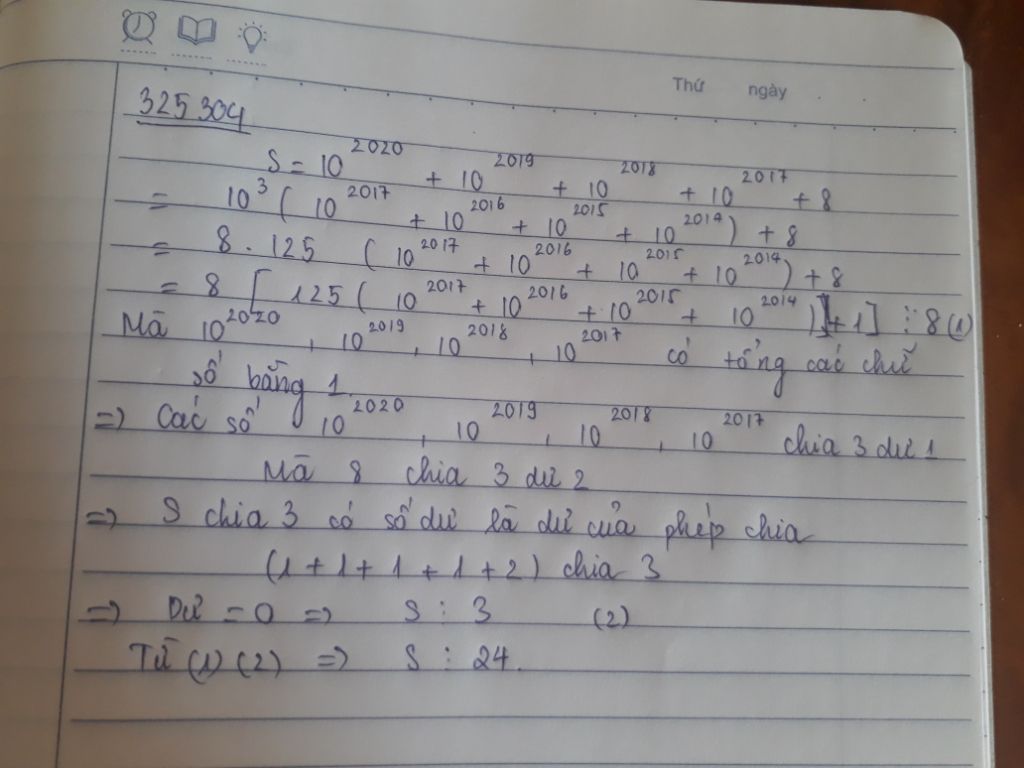 Thứ ngày
325 304
S = 10^2020 + 10^2019 + 10^2018 + 10^2017 + 8
= 10^3 ( 10^2017 + 10^2016 + 10^2015 + 10^2014 ) + 8
= 8 . 125 ( 10^2017 + 10^2016 + 10^2015 + 10^2014 ) + 8
= 8 [ 125 ( 10^2017 + 10^2016 + 10^2015 + 10^2014 ) + 1 ] ⋮ 8 (1)
Mà 10^2020 , 10^2019 , 10^2018 , 10^2017 có tổng các chữ
số bằng 1
=> Các số 10^2020 , 10^2019 , 10^2018 , 10^2017 chia 3 dư 1
Mà 8 chia 3 dư 2
=> S chia 3 có số dư là dư của phép chia
(1 + 1 + 1 + 1 + 2) chia 3
=> Dư = 0 => S ⋮ 3 (2)
Từ (1) (2) => S ⋮ 24.